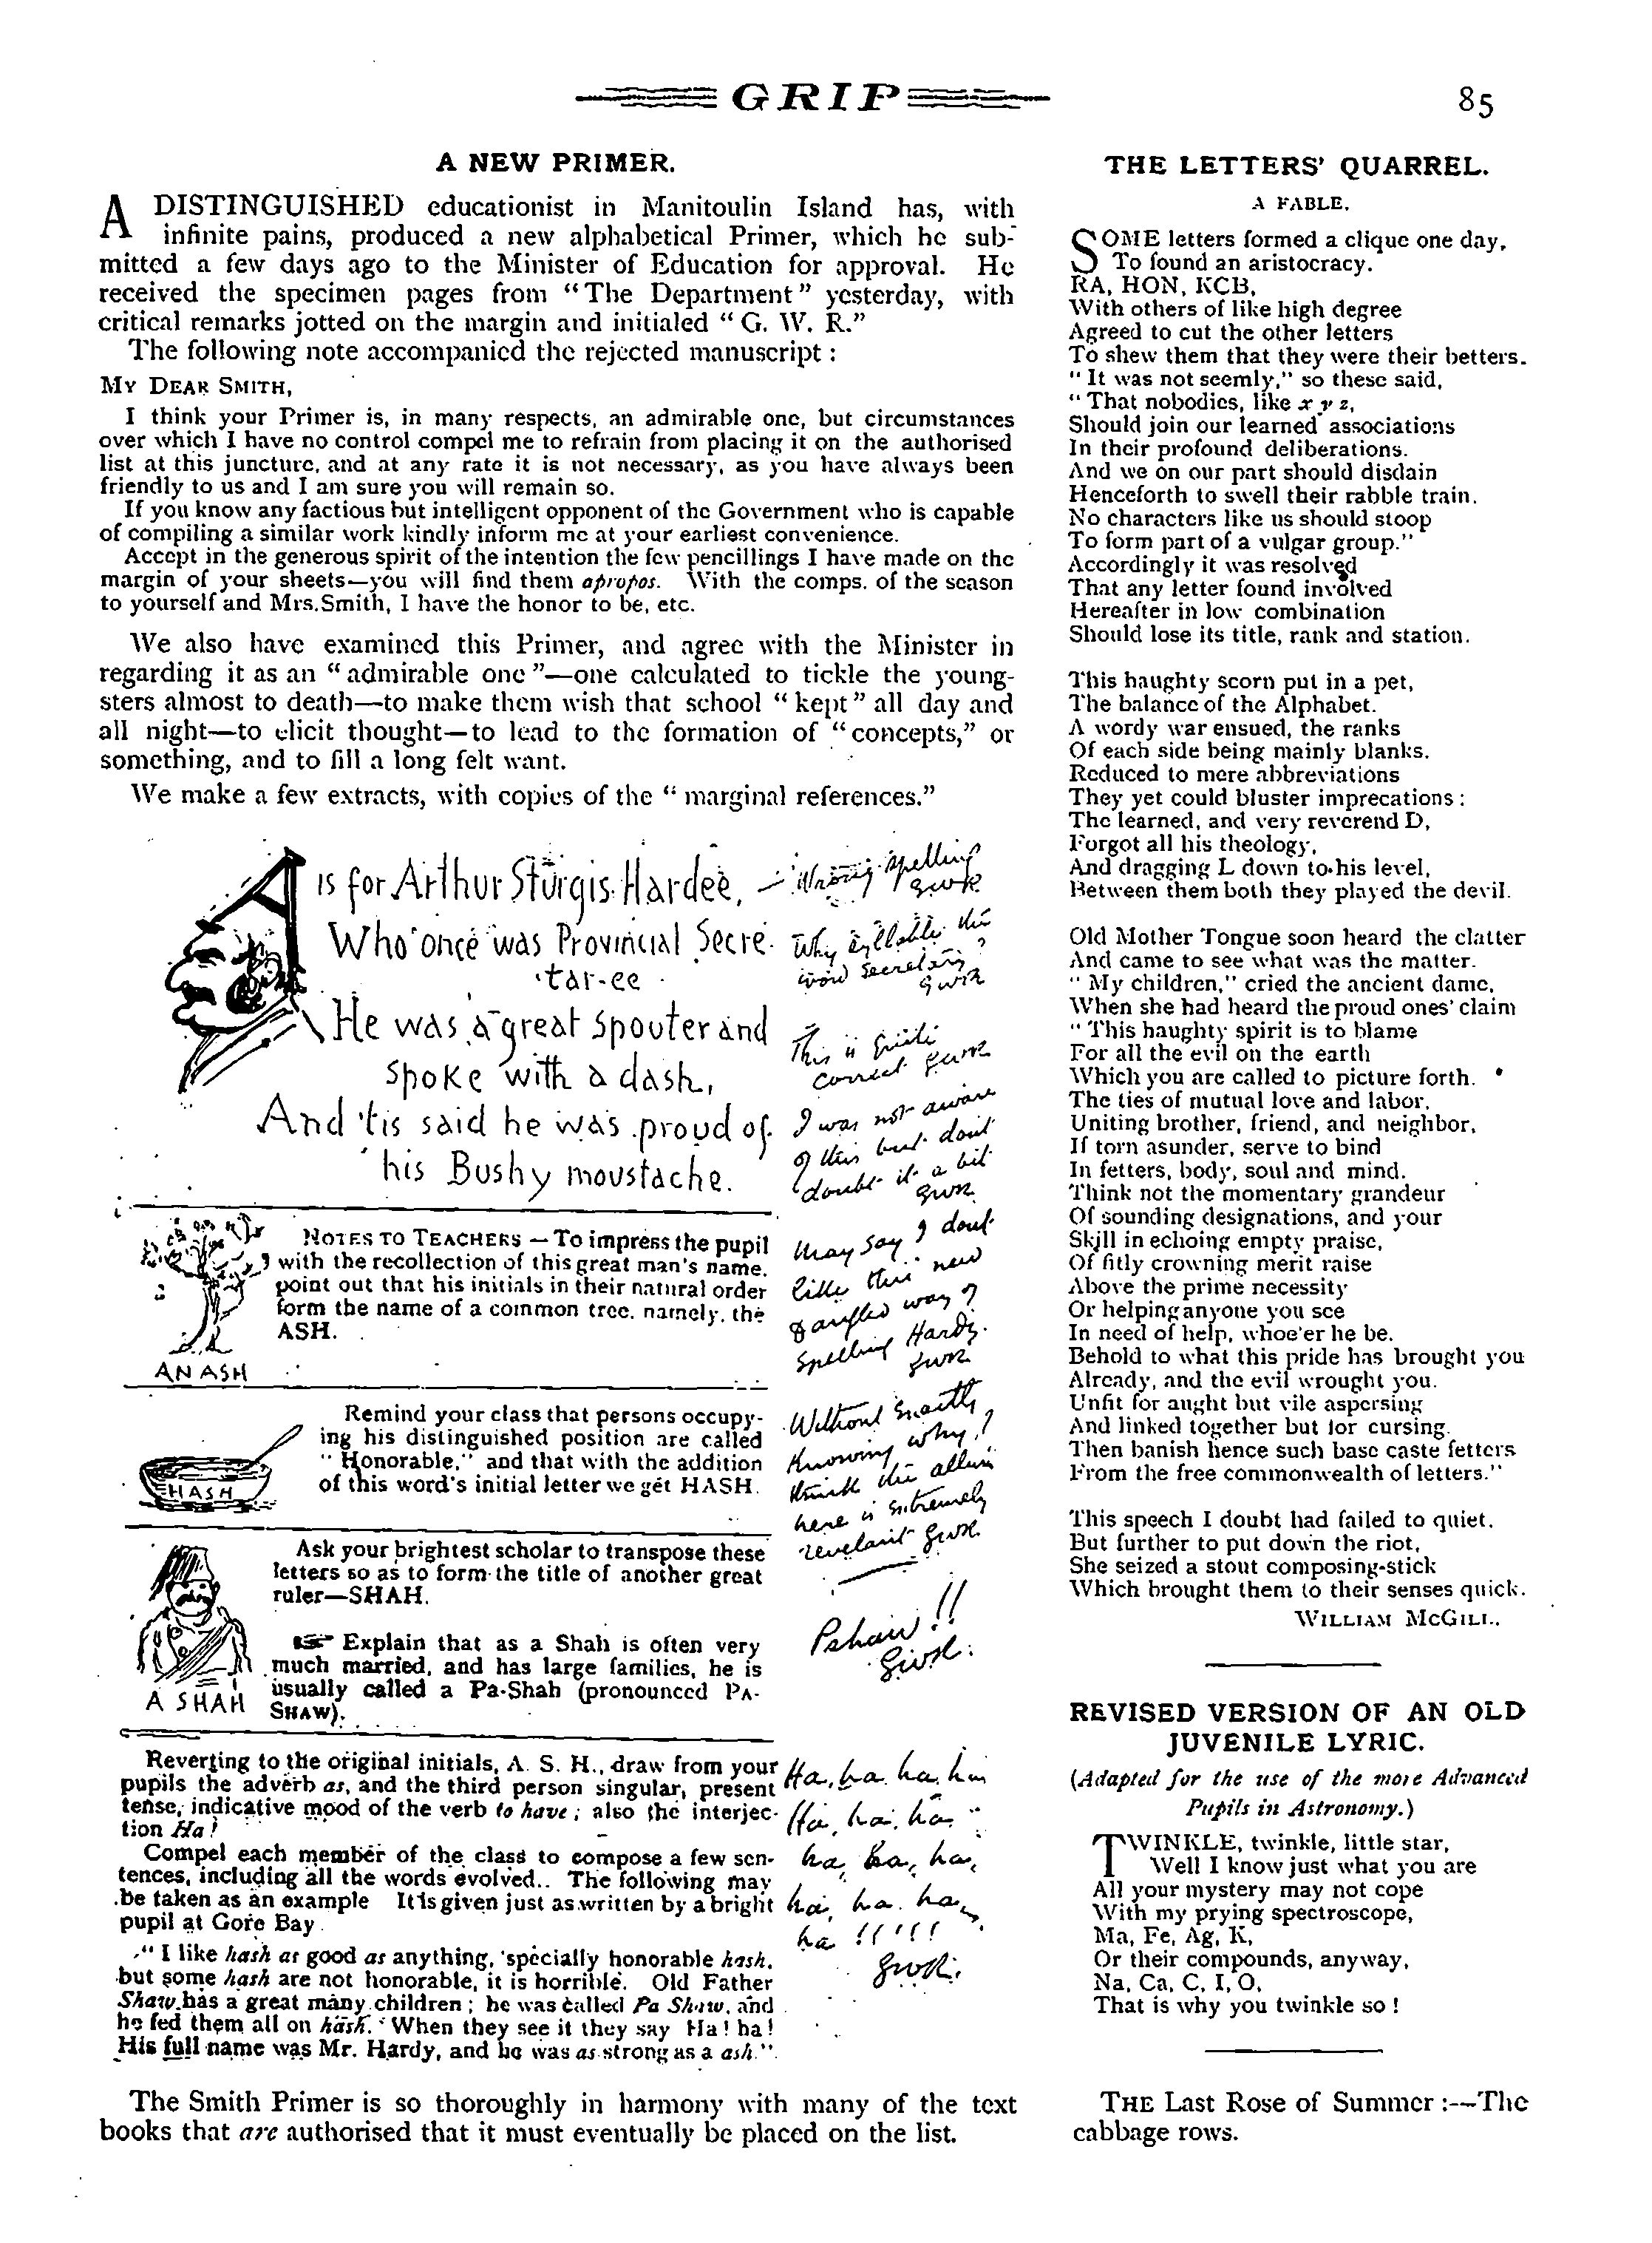 GRIP
85
A NEW PRIMER.
A DISTINGUISHED educationist in Manitoulin Island has, with
infinite pains, produced a new alphabetical Primer, which he sub-
mitted a few days ago to the Minister of Education for approval. He
received the specimen pages from "The Department" yesterday, with
critical remarks jotted on the margin and initialed "G. W. R."
The following note accompanied the rejected manuscript :
MY DEAR SMITH,
I think your Primer is, in many respects, an admirable one, but circumstances
over which I have no control compel me to refrain from placing it on the authorised
list at this juncture, and at any rate it is not necessary, as you have always been
friendly to us and I am sure you will remain so.
If you know any factious but intelligent opponent of the Government who is capable
of compiling a similar work kindly inform me at your earliest convenience.
Accept in the generous spirit of the intention the few pencillings I have made on the
margin of your sheets—you will find them apropos. With the comps. of the season
to yourself and Mrs.Smith, I have the honor to be, etc.
We also have examined this Primer, and agree with the Minister in
regarding it as an "admirable one"—one calculated to tickle the young-
sters almost to death—to make them wish that school "kept" all day and
all night—to elicit thought—to lead to the formation of "concepts," or
something, and to fill a long felt want.
We make a few extracts, with copies of the "marginal references."
A is for Arthur Sturgis Hardee,
Who once was Provincial Secre-
tar-ee
He was a great spouter and
spoke with a dash,
And 'tis said he was proud of
his Bushy moustache.
Wrong spelling
GWR
Why syllable the
word secretary?
GWR
This is quite
correct GWR
I was not aware
of this but don't
doubt it a bit
GWR
NOTES TO TEACHERS — To impress the pupil
with the recollection of this great man's name,
point out that his initials in their natural order
form the name of a common tree, namely, the
ASH.
AN ASH
May say I don't
like this new
fangled way of
spelling Hardy.
GWR
Remind your class that persons occupy-
ing his distinguished position are called
"Honorable," and that with the addition
of this word's initial letter we get HASH.
HASH
Without exactly
knowing why, I
think the allusion
here is extremely
revelant GWR.
Ask your brightest scholar to transpose these
letters so as to form the title of another great
ruler—SHAH.
☞ Explain that as a Shah is often very
much married, and has large families, he is
usually called a Pa-Shah (pronounced PA-
SHAW).
A SHAH
Pshaw!!
GWR.
Reverting to the original initials, A. S. H., draw from your
pupils the adverb as, and the third person singular, present
tense, indicative mood of the verb to have ; also the interjec-
tion Ha!
Compel each member of the class to compose a few sen-
tences, including all the words evolved.. The following may
be taken as an example It is given just as written by a bright
pupil at Gore Bay
"I like hash as good as anything, 'specially honorable hash,
but some hash are not honorable, it is horrible. Old Father
Shaw has a great many children ; he was called Pa Shaw, and
he fed them all on hash. When they see it they say Ha! ha!
His full name was Mr. Hardy, and he was as strong as a ash."
Ha, ha. ha, ha
Ha, ha, ha
ha, ha, ha,
ha, ha. ha,
ha !!!!!
GWR.
The Smith Primer is so thoroughly in harmony with many of the text
books that are authorised that it must eventually be placed on the list.
THE LETTERS' QUARREL.
A FABLE.
SOME letters formed a clique one day,
To found an aristocracy.
RA, HON, KCB,
With others of like high degree
Agreed to cut the other letters
To shew them that they were their betters.
"It was not seemly," so these said,
"That nobodies, like x y z,
Should join our learned associations
In their profound deliberations.
And we on our part should disdain
Henceforth to swell their rabble train.
No characters like us should stoop
To form part of a vulgar group."
Accordingly it was resolved
That any letter found involved
Hereafter in low combination
Should lose its title, rank and station.
This haughty scorn put in a pet,
The balance of the Alphabet.
A wordy war ensued, the ranks
Of each side being mainly blanks.
Reduced to mere abbreviations
They yet could bluster imprecations :
The learned, and very reverend D,
Forgot all his theology,
And dragging L down to his level,
Between them both they played the devil.
Old Mother Tongue soon heard the clatter
And came to see what was the matter.
"My children," cried the ancient dame,
When she had heard the proud ones' claim
"This haughty spirit is to blame
For all the evil on the earth
Which you are called to picture forth.
The ties of mutual love and labor,
Uniting brother, friend, and neighbor,
If torn asunder, serve to bind
In fetters, body, soul and mind.
Think not the momentary grandeur
Of sounding designations, and your
Skill in echoing empty praise,
Of fitly crowning merit raise
Above the prime necessity
Or helping anyone you see
In need of help, whoe'er he be.
Behold to what this pride has brought you
Already, and the evil wrought you.
Unfit for aught but vile aspersing
And linked together but for cursing.
Then banish hence such base caste fetters
From the free commonwealth of letters."
This speech I doubt had failed to quiet.
But further to put down the riot,
She seized a stout composing-stick
Which brought them to their senses quick.
WILLIAM MCGILL.
REVISED VERSION OF AN OLD
JUVENILE LYRIC.
(Adapted for the use of the more Advanced
Pupils in Astronomy.)
TWINKLE, twinkle, little star,
Well I know just what you are
All your mystery may not cope
With my prying spectroscope,
Ma, Fe, Ag, K,
Or their compounds, anyway,
Na, Ca, C, I, O,
That is why you twinkle so !
THE Last Rose of Summer :—The
cabbage rows.